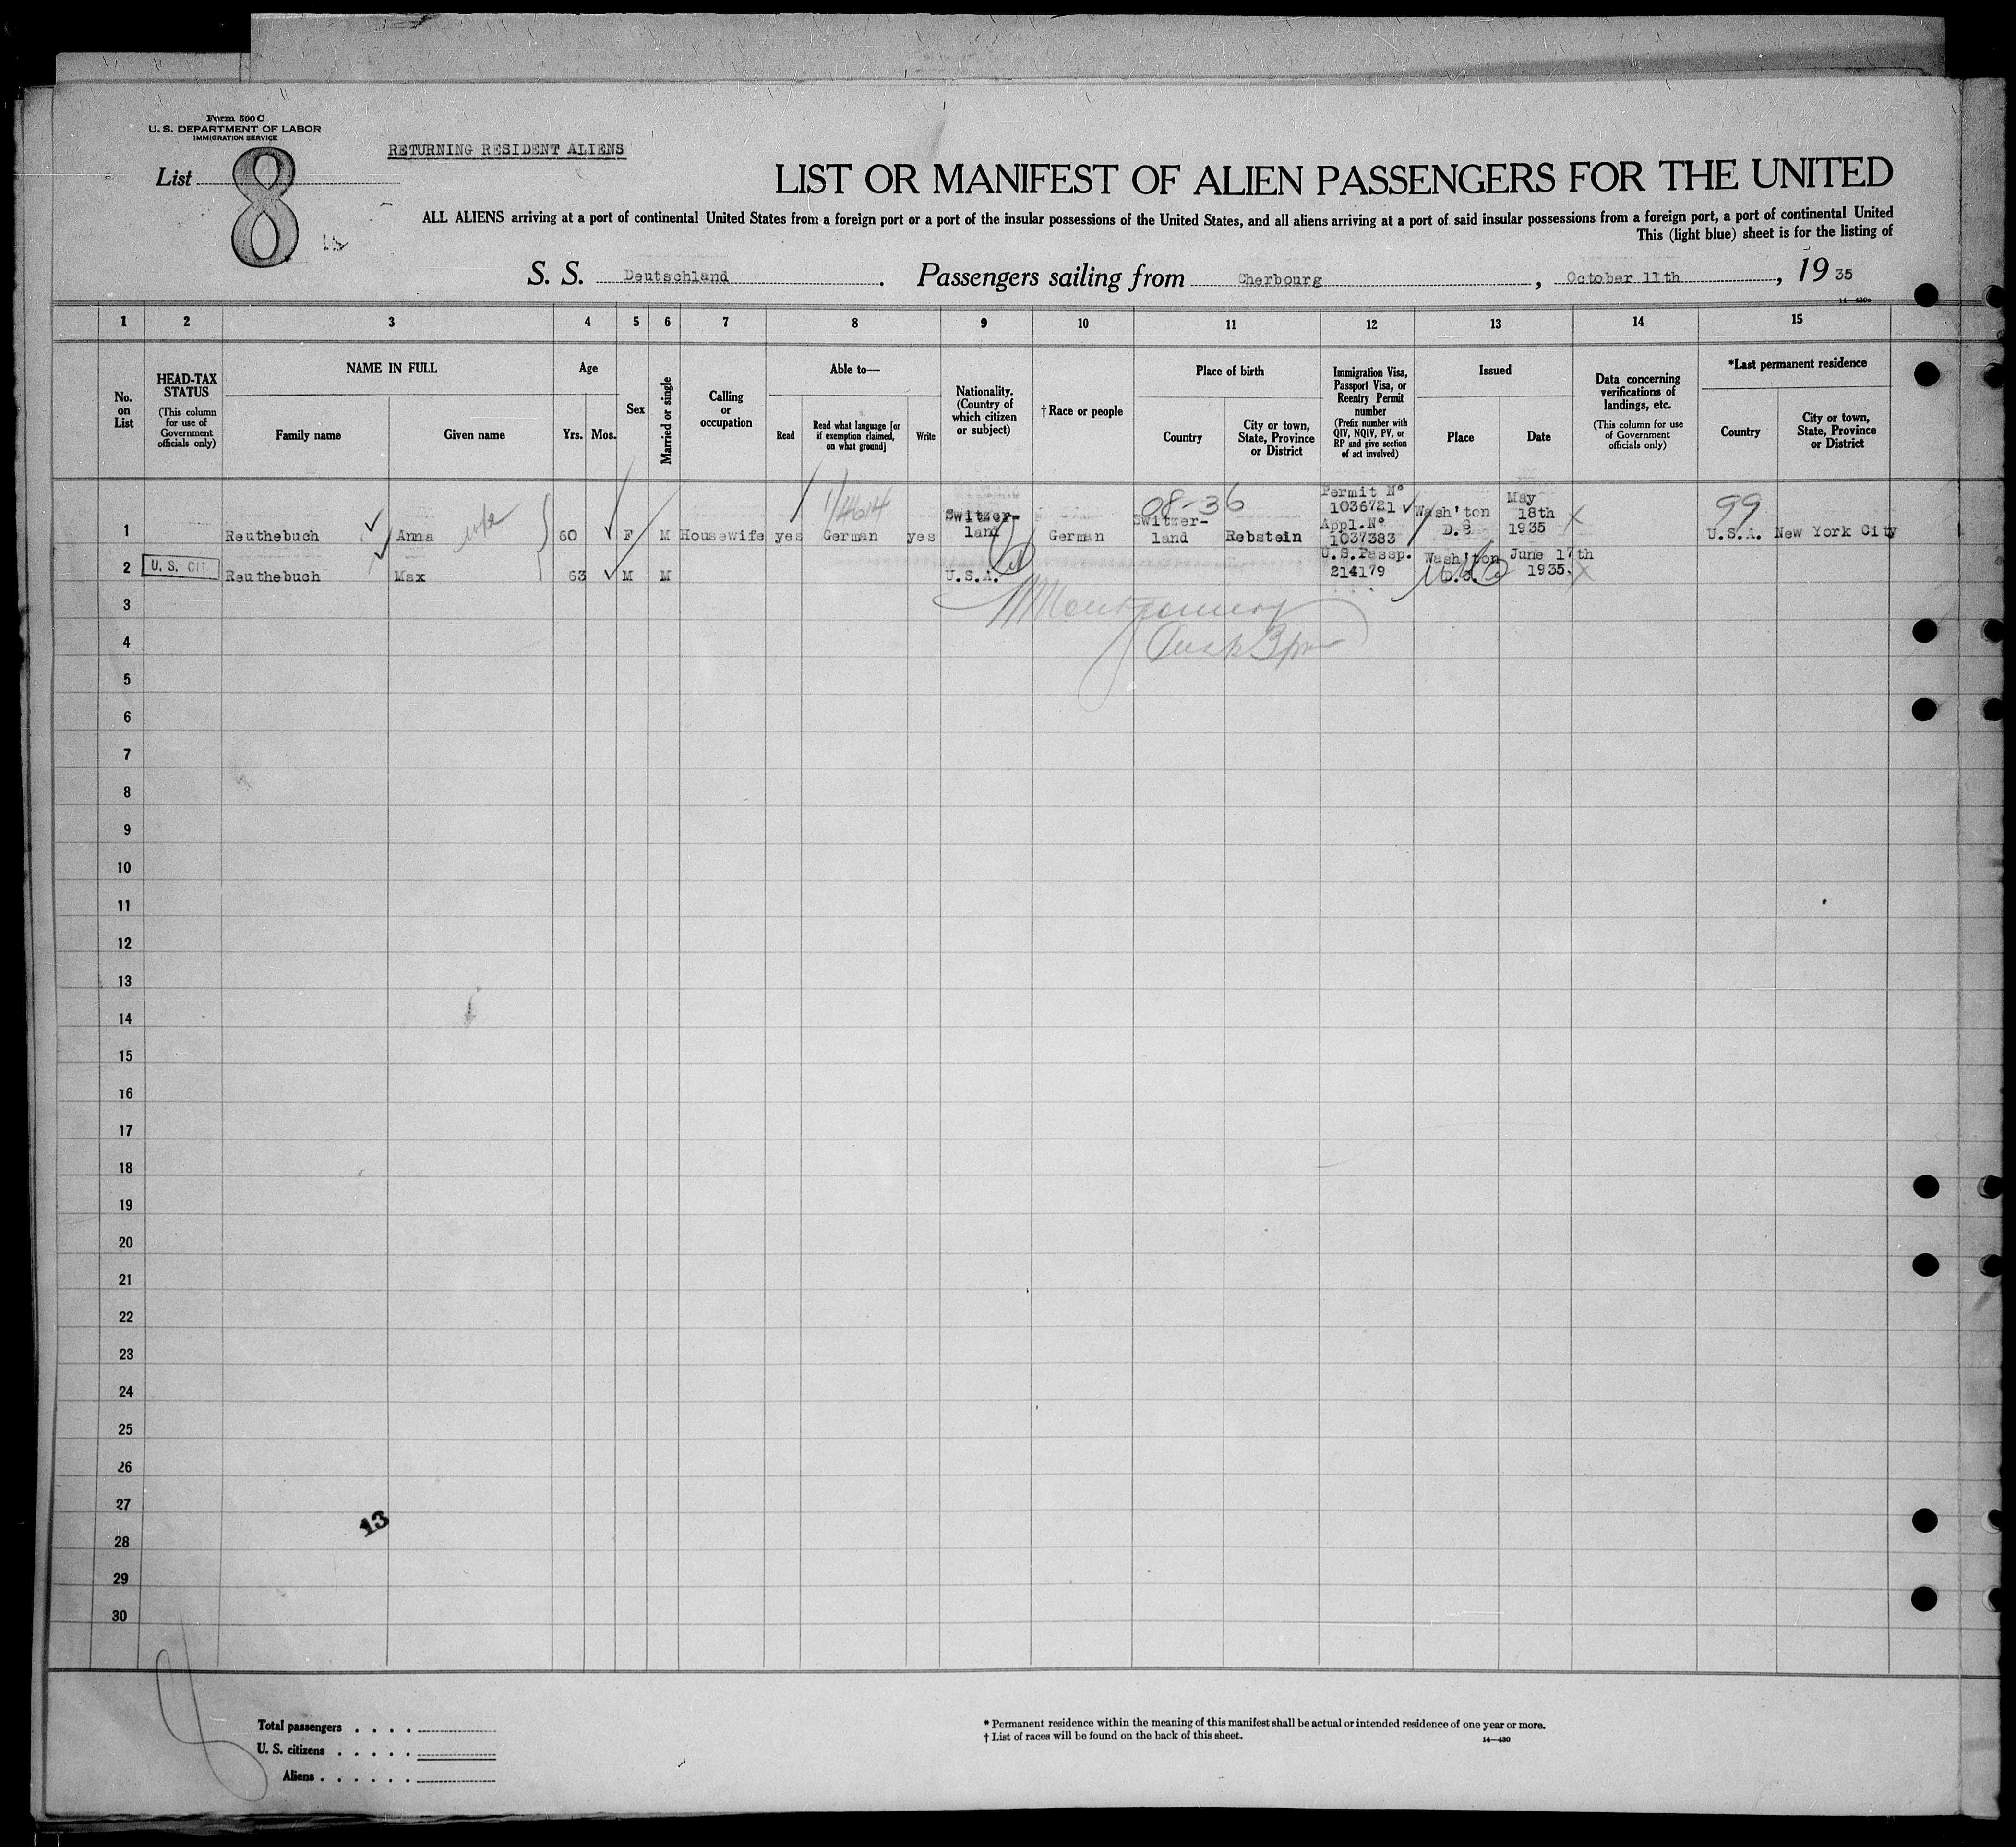 Form 500 C
U. S. DEPARTMENT OF LABOR
IMMIGRATION SERVICE
RETURNING RESIDENT ALIENS
List 8
LIST OR MANIFEST OF ALIEN PASSENGERS FOR THE UNITED
ALL ALIENS arriving at a port of continental United States from a foreign port or a port of the insular possessions of the United States, and all aliens arriving at a port of said insular possessions from a foreign port, a port of continental United
This (light blue) sheet is for the listing of
S. S. Deutschland. Passengers sailing from Cherbourg, October 11th, 19 35
14—430a
1 2 3 4 5 6 7 8 9 10 11 12 13 14 15
No. on List
HEAD-TAX STATUS
(This column for use of Government officials only)
NAME IN FULL
Family name
Given name
Age
Yrs.
Mos.
Sex
Married or single
Calling or occupation
Able to—
Read
Read what language [or if exemption claimed, on what ground]
Write
Nationality. (Country of which citizen or subject)
†Race or people
Place of birth
Country
City or town, State, Province or District
Immigration Visa, Passport Visa, or Reentry Permit number
(Prefix number with QIV, NQIV, PV, or RP and give section of act involved)
Issued
Place
Date
Data concerning verifications of landings, etc.
(This column for use of Government officials only)
*Last permanent residence
Country
City or town, State, Province or District
1/464
08-36
99
1 Reuthebuch Anna wife 60 F M Housewife yes German yes Switzer-land German Switzer-land Rebstein Permit No 1036721 Appl.No 1037383 Wash'ton D.C May 18th 1935 U.S.A. New York City
2 U. S. CIT Reuthebuch Max 63 M M U.S.A. U.S.Passp. 214179 Wash'ton D.C. June 17th 1935.
Montgomery
3
4
5
6
7
8
9
10
11
12
13
14
15
16
17
18
19
20
21
22
23
24
25
26
27
13
28
29
30
Total passengers . . . .
U. S. citizens . . . . .
Aliens . . . . . .
* Permanent residence within the meaning of this manifest shall be actual or intended residence of one year or more.
† List of races will be found on the back of this sheet.
14—430